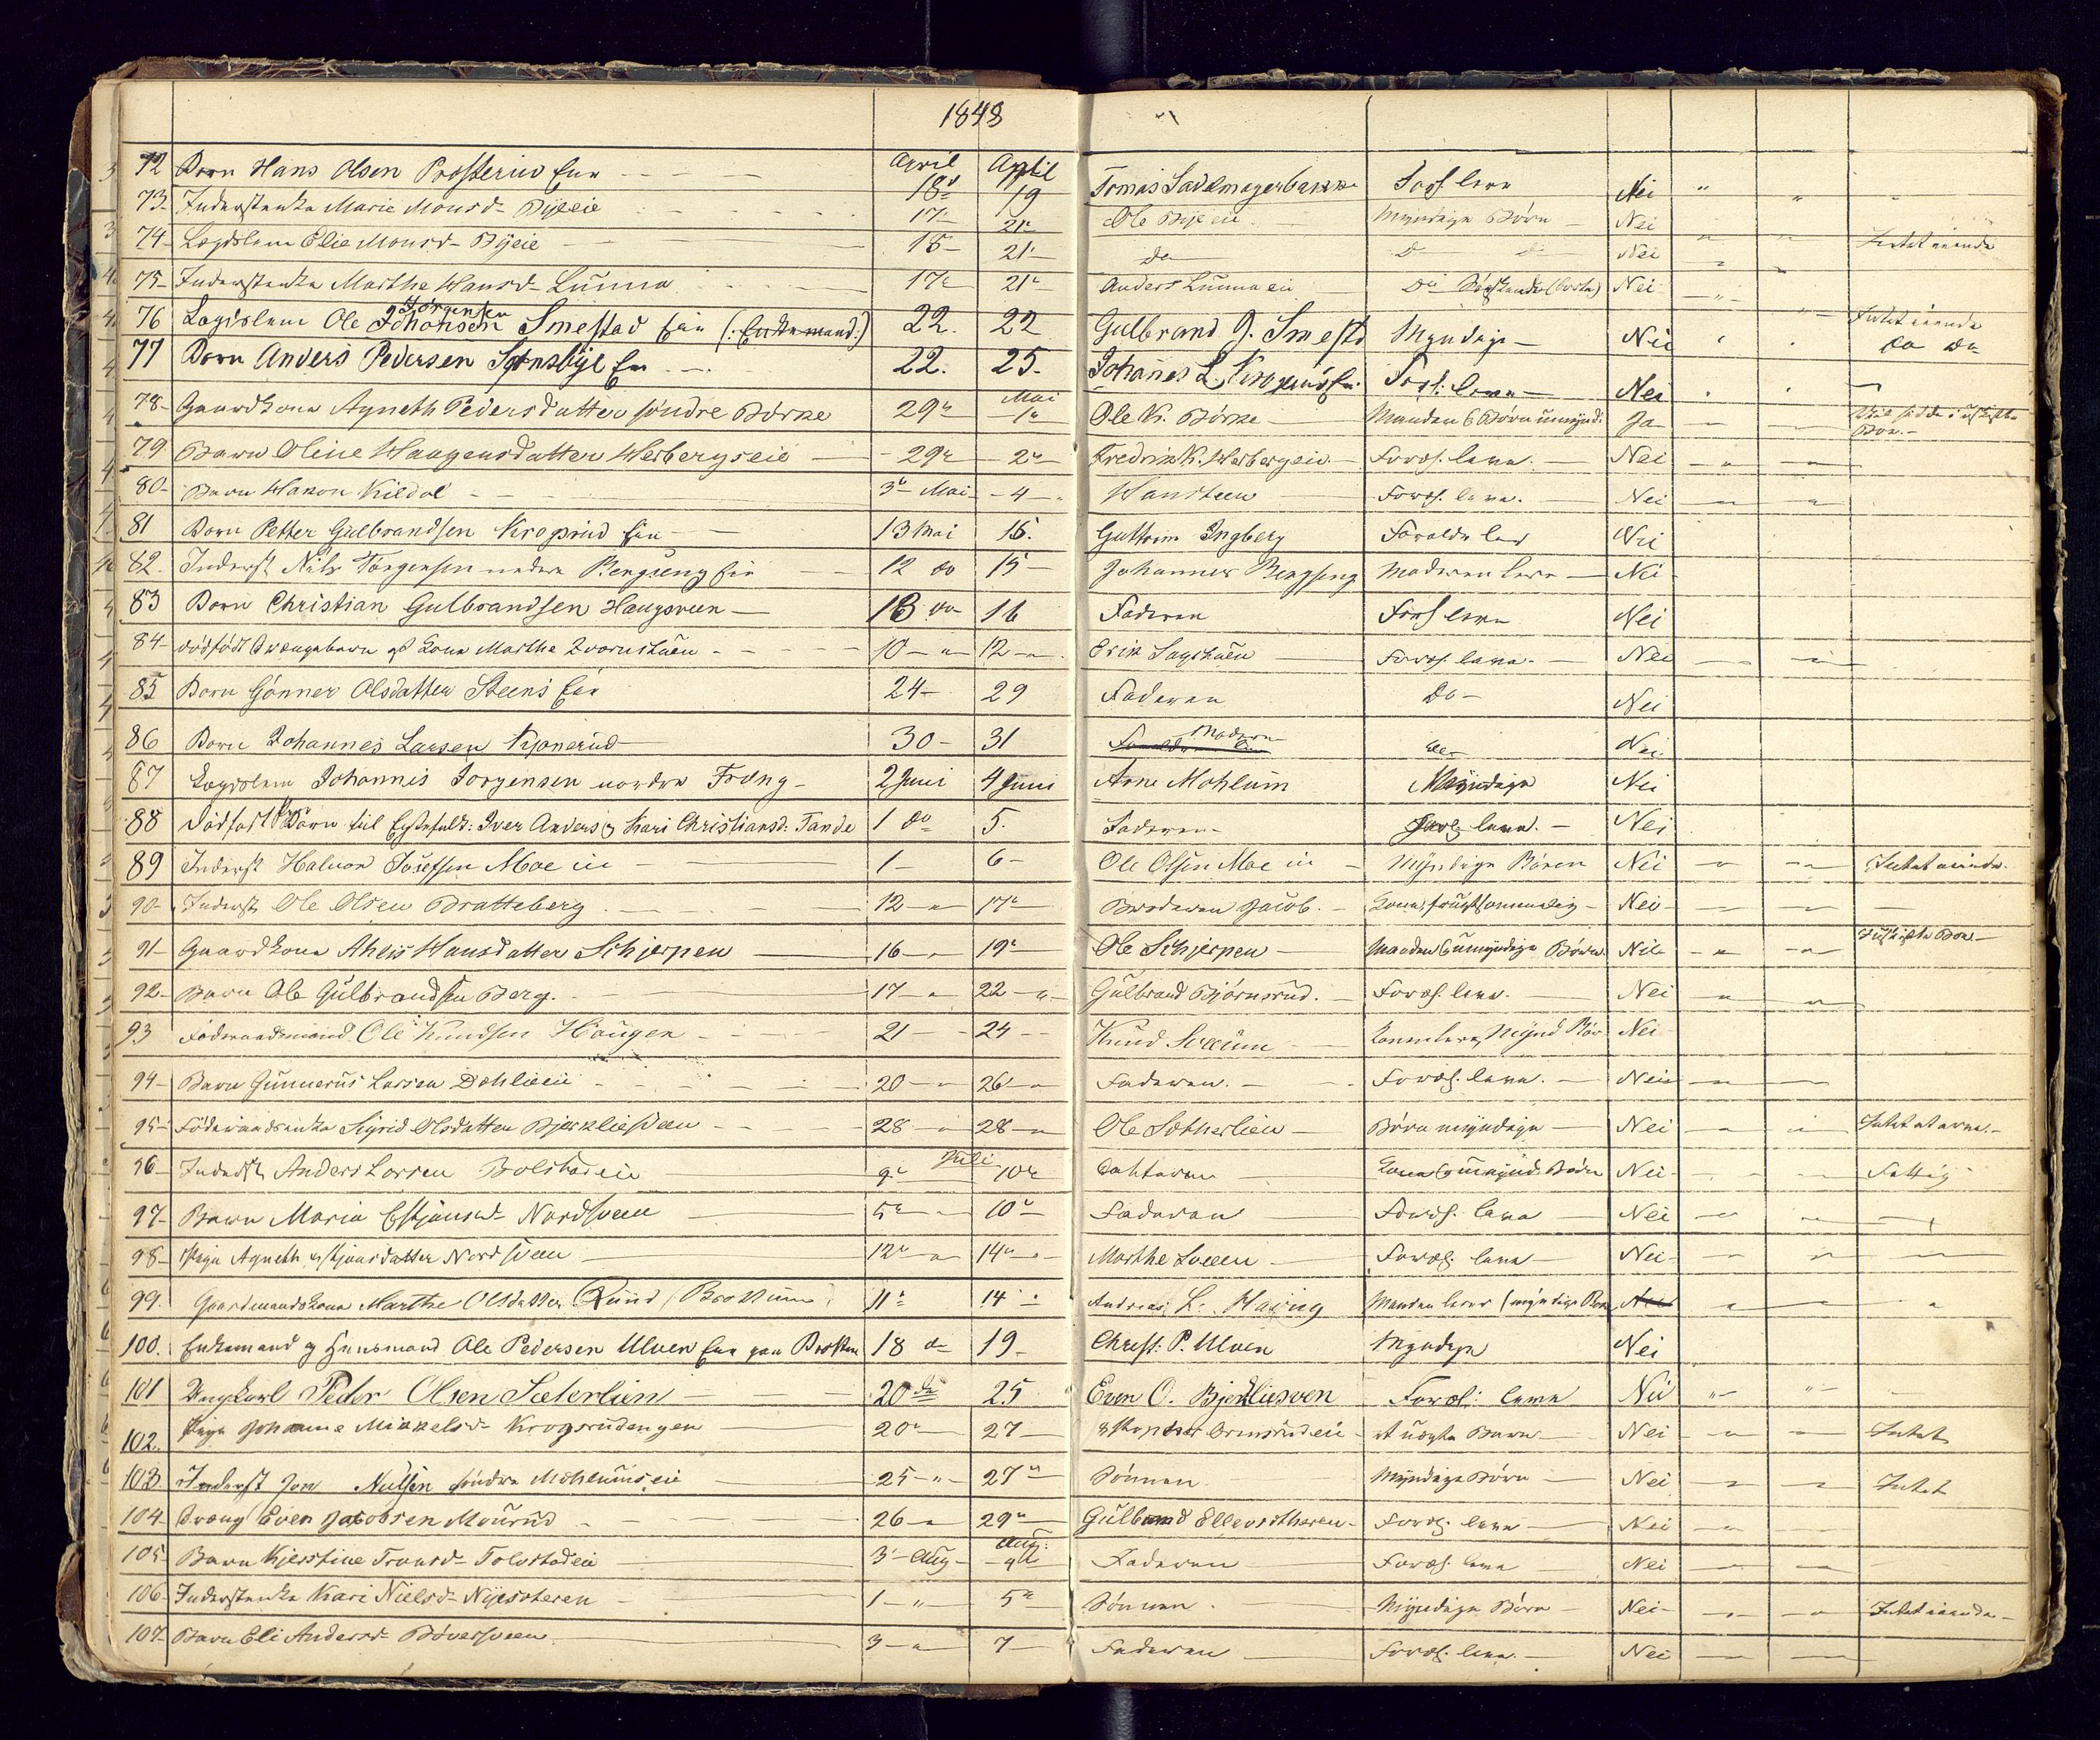 1848
April April
72 Barn Hans Olsen Prosteriet Eie 18de 19 Tomas Sadelmagerbakke Foræl. leve Nei " " "
73 Inderstenke Marie Monsd. Bijeeie 17 21 Ole Bijeeie Myndige Børn Nei
74 Lægdslem Elie Monsd. Bijeie 18 21 do D D Nei Intet eiende
75 Inderstenke Marthe Hansd. Lunna 17 21 Anders Lunna eie Do Søskende Nei
76 Lægdslem Ole Jörgensen Johansen Smestad Eie (: Enkemand :) 22. 22 Gulbrand J. Smestd Myndige Nei Intet eiende
77 Barn Anders Pedersen Eie 22. 25. Johanes L. Foræl. leve Nei do do
Mai
78 Gaardkone Agneth Pedersdatter søndre Börke 29 1 Ole K. Börke Manden & Børn umynd: Ja
79 Barn Oline Haagensdatter Herbergseie 29 2 Fredrik K. Herbergeie Foræl. leve. Nei
80 Barn Hakon Kildal 3 Mai 4 Hansteen Foræl. leve. Nei
81 Barn Petter Gulbrandsen Krogsrud Eie 13 Mai 16. Guttorm Ingberg Foreldre lever Nei
82. Inderst Nils Torgersen nedre Bengseng Eie 12 do 15 Johannes Bengseng Moderen leve Nei
83 Barn Christian Gulbrandsen Haugsveen 13 do 16 Faderen Foræl leve Nei
84 dödfödt Drengebarn af Kone Marthe Qvernstuen 10 12 Erik Sagstuen Foræl. leve. Nei
85 Barn Gönner Olsdatter Steens Eie 24 29 Faderen Do Nei
86 Barn Johannes Larsen Kjonerud 30 31 Moderen do Nei
87 Lægdslem Johannis Jorgensen nordre Fræng 2 Juni 4 Juni Arne Mohlum Myndige Nei
88 Dödfødt Barn til Egtefolk: Iver Anders: & Kari Christiansd: Tande 1 do 5. Faderen Foræl leve. Nei
89 Inderst Halvor Josefsen Moe eie 1 6 Ole Olsen Moe eie Myndige Börn Nei Intet eiende.
90 Inderst Ole Olsen Bratteberg 12 17 Broderen Jacob. Kone, frugtsommelig Nei
91 Gaardkone Ahlis Hansdatter Schjerpen 16 19 Ole Schjerpen Manden & umyndige Börn. Nei Uskiftet Boe
92 Barn Ole Gulbrandsen Berg. 17 22 Gulbrand Björnsrud. Foræl. leve. Nei
93 Föderaadsmand Ole Knudsen Haugen 21 24 Knud Sveum Konen leve, Mynd Bör Nei
94 Barn Gunnerus Larsen Dahlieeie 20 26 Faderen. Foræl. leve. Nei
95 Föderaadsenke Sigrid Olsdatter Bjerkliesveen 28 28 Ole Sætherlien Börn myndige Nei Intet at arve.
Juli
96 Inderst Anders Larsen Bolstadeie 9 10 Dahteren Kone & umynd. Börn Nei Fattig
97 Barn Maria Estjansd. Nordsveen 5 10 Faderen Foræl. leve Nei
98 Pige Agneth Estjansdatter Nordsveen 12 14 Marthe Sveen Foræl. leve Nei
99. Gaardmandskone Marthe Olsdatter Rund / Brottum 11 14 Andreas L. Haug Manden lever / myndige Børn Nei
100. Enkemand & Huusmand Ole Pedersen Ulven Eie paa Brottum 18 do 19 Christ: P. Ulven Myndige Nei
101 Ungkarl Peder Olsen Sæterlien 20 de 25 Even O. Bjerkliesven Foræl: leve Nei
102. Pige Johanne Mikkelsd. Krogsrudengen 20 27 Ormsrudeie et uægte Barn Nei Intet
103 Inderst Jon Nielsen søndre Mohlumseie 25 27 Sönnen. Myndige Börn Nei Intet
104 Dreng Even Jacobsen Mourud 26 29 Gulbrand Ellevsetheren Foræl. leve Nei
Aug:
105 Barn Kjerstine Tronsd. Tolvstadeie 3 Aug 9 Faderen Foræl. leve Nei
106 Inderstenke Kari Nielsd. Nysæteren 1 5 Sönnen. Myndige Börn Nei Intet eiende
107 Barn Eli Andersd. Böversveen 3 7 Faderen Foræl. leve. Nei